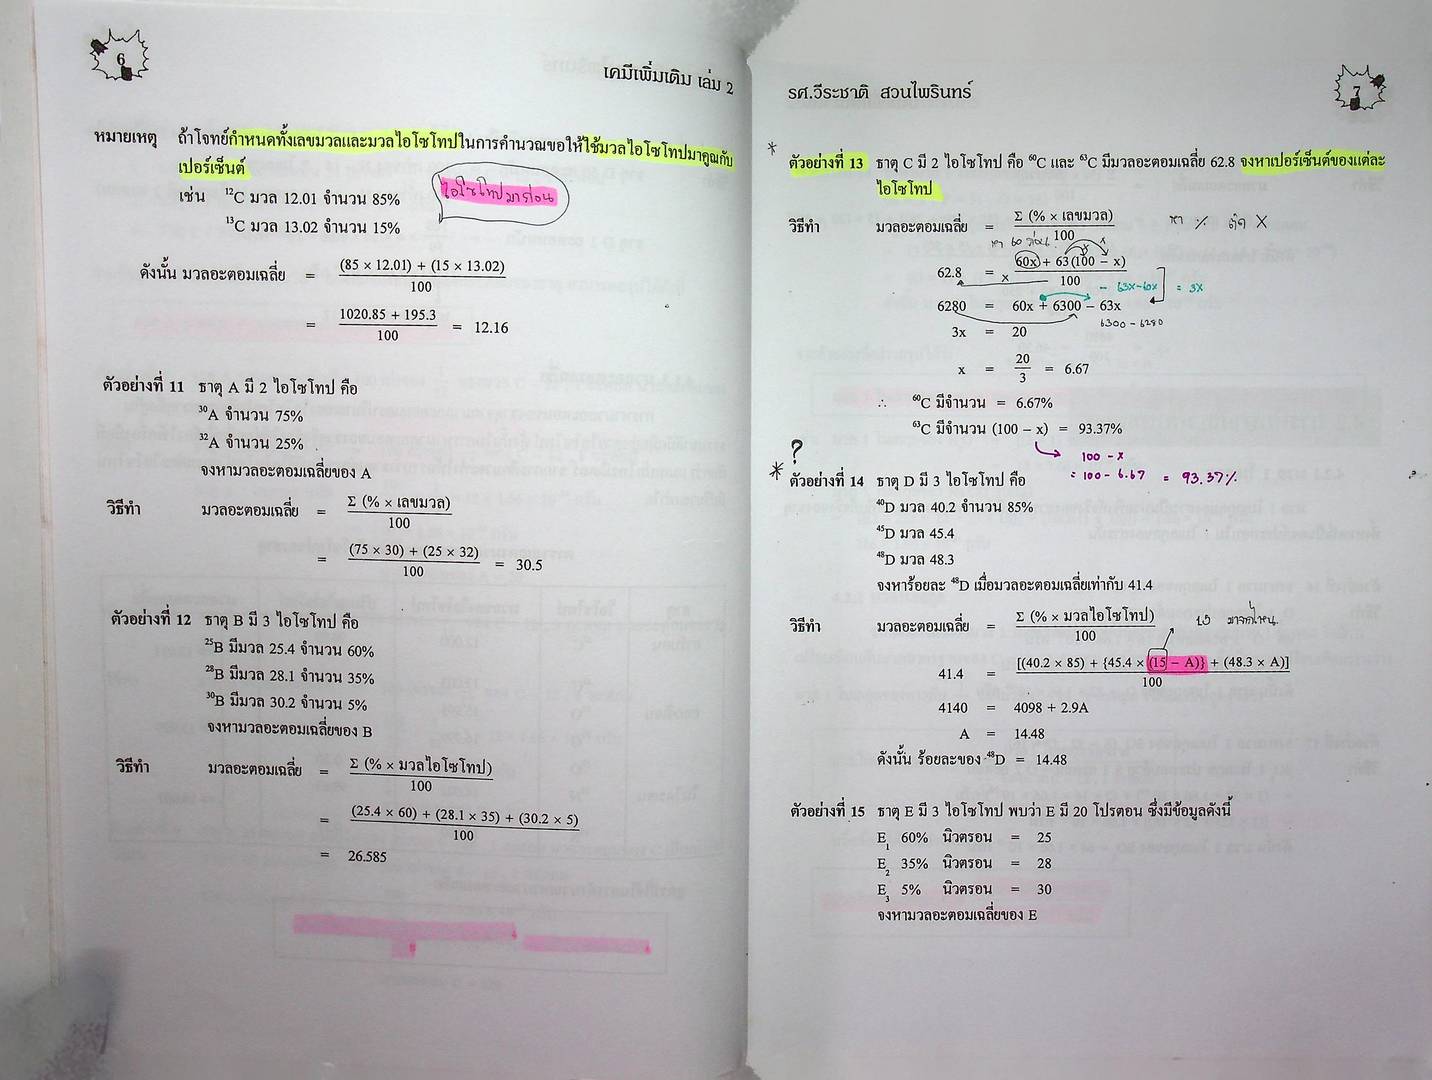 6
เคมีเพิ่มเติม เล่ม 2
หมายเหตุ ถ้าโจทย์กำหนดทั้งเลขมวลและมวลไอโซโทปในการคำนวณขอให้ใช้มวลไอโซโทปมาคูณกับ
เปอร์เซ็นต์
ไอโซโทปมาก่อน
เช่น ¹²C มวล 12.01 จำนวน 85%
¹³C มวล 13.02 จำนวน 15%
ดังนั้น มวลอะตอมเฉลี่ย = (85 × 12.01) + (15 × 13.02)
100
= 1020.85 + 195.3
100
= 12.16
ตัวอย่างที่ 11 ธาตุ A มี 2 ไอโซโทป คือ
³⁰A จำนวน 75%
³²A จำนวน 25%
จงหามวลอะตอมเฉลี่ยของ A
วิธีทำ มวลอะตอมเฉลี่ย = Σ (% × เลขมวล)
100
= (75 × 30) + (25 × 32)
100
= 30.5
ตัวอย่างที่ 12 ธาตุ B มี 3 ไอโซโทป คือ
²⁵B มีมวล 25.4 จำนวน 60%
²⁸B มีมวล 28.1 จำนวน 35%
³⁰B มีมวล 30.2 จำนวน 5%
จงหามวลอะตอมเฉลี่ยของ B
วิธีทำ มวลอะตอมเฉลี่ย = Σ (% × มวลไอโซโทป)
100
= (25.4 × 60) + (28.1 × 35) + (30.2 × 5)
100
= 26.585
รศ.วีระชาติ สวนไพรินทร์
7
* ตัวอย่างที่ 13 ธาตุ C มี 2 ไอโซโทป คือ ⁶⁰C และ ⁶³C มีมวลอะตอมเฉลี่ย 62.8 จงหาเปอร์เซ็นต์ของแต่ละ
ไอโซโทป
วิธีทำ มวลอะตอมเฉลี่ย = Σ (% × เลขมวล)
100
หา %
X
หา 60 ก่อน
62.8 = 60x + 63(100 − x)
100
- 63x-60x = 3x
6280 = 60x + 6300 − 63x
6300 - 6280
3x = 20
x = 20
3
= 6.67
∴ ⁶⁰C มีจำนวน = 6.67%
⁶³C มีจำนวน (100 − x) = 93.37%
100 - x
= 100 - 6.67 = 93.37%
?
* ตัวอย่างที่ 14 ธาตุ D มี 3 ไอโซโทป คือ
⁴⁰D มวล 40.2 จำนวน 85%
⁴⁵D มวล 45.4
⁴⁸D มวล 48.3
จงหาร้อยละ ⁴⁸D เมื่อมวลอะตอมเฉลี่ยเท่ากับ 41.4
วิธีทำ มวลอะตอมเฉลี่ย = Σ (% × มวลไอโซโทป)
100
15 มาจากไหน
41.4 = [(40.2 × 85) + {45.4 × (15 − A)} + (48.3 × A)]
100
4140 = 4098 + 2.9A
A = 14.48
ดังนั้น ร้อยละของ ⁴⁸D = 14.48
ตัวอย่างที่ 15 ธาตุ E มี 3 ไอโซโทป พบว่า E มี 20 โปรตอน ซึ่งมีข้อมูลดังนี้
E₁ 60% นิวตรอน = 25
E₂ 35% นิวตรอน = 28
E₃ 5% นิวตรอน = 30
จงหามวลอะตอมเฉลี่ยของ E